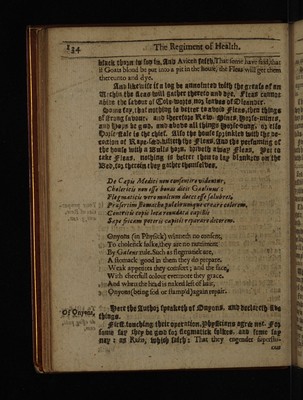 134 The Regiment of Health.
block there in lay so. And Avicen saith, That some have said, that
if Goats bloud be put into a pit in the house, the Fleas will get them
thereunto and dye.
And likewise if a log be annointed with the grease of an
Urchin the fleas will gather thereto and dye. Fleas cannot
abide the savour of Cole-worts, nor leaves of Oleander.
Some say, that nothing is better to avoid Fleas, then things
of strong savour. and therefore Rew, Mints, Horse-mints,
and Hops be good, and above all things Horse-dung, or else
Horse-stale is the chief. Also the house sprinkled with the de-
coction of Rape-seed, killeth the Fleas. And the perfuming of
the house with a Bulls horn driveth away Fleas. Yet to
take Fleas, nothing is better then to lay blankets on the
Bed, for therein they gather themselves.
De Cepis Medici non consentire videntur,
Cholericis non esse bonas dicit Galenus:
Flegmaticis vero multum docet esse salubres,
Præsertim stomacho, pulchrumque creare colorem,
Contritis cepis loca eundata capillis
Sæpe fricans poteris capitis reparare decorem.
Onyons (in Physick) winneth no consent,
To cholerick folke, they are no nutriment
By Galens rule. Such as flegmatick are,
A stomack good in them they do prepare.
Weak appetites they comfort; and the face,
With cheerfull colour evermore they grace.
And when the head is naked left of hair,
Onyons (being sod or stamp'd) again repair.
Of Onyons.
Here the Author speaketh of Onyons. and declareth
things.
First touching their operation, Physitians agree not. For
some say they be good for flegmatick folkes. and some say
nay: as Rasis, which saith: That they engender superflu-
ous